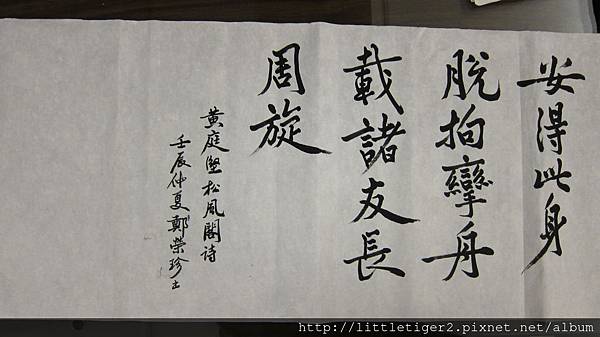 安得此身
脫拘攣舟
載諸友長
周旋
黃庭堅松風閣诗
壬辰仲夏鄭榮珍書
http://littletiger2.pixnet.net/album